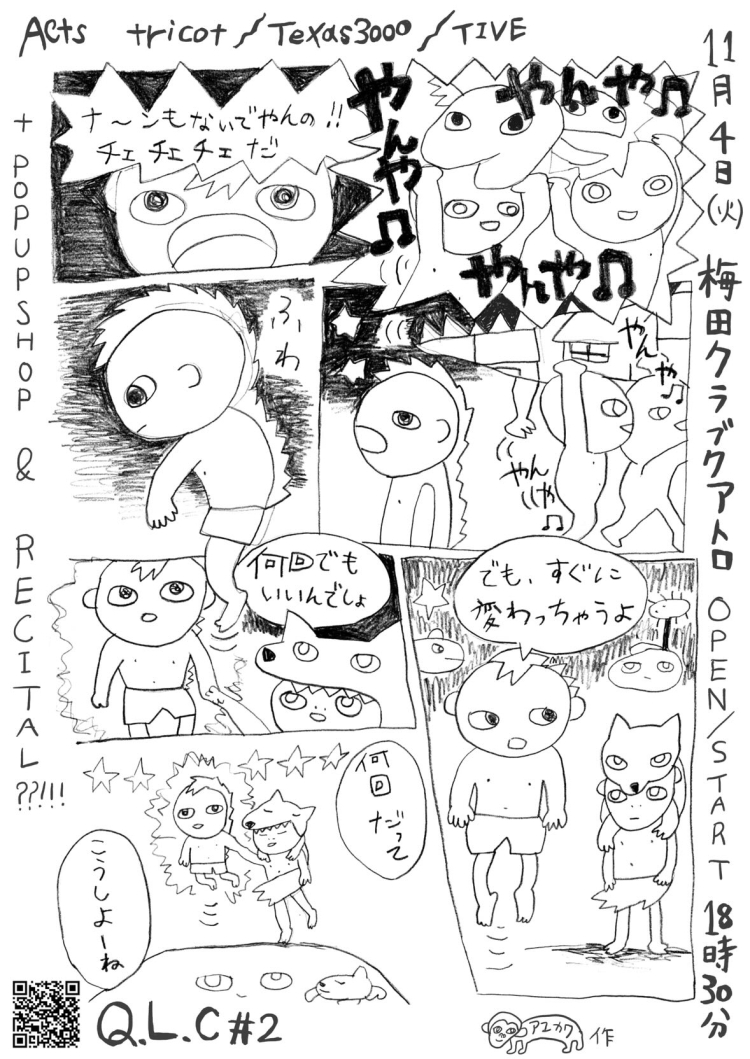 Acts tricot / Texas3000 / TIVE
11月4日(火) 梅田クラブクアトロ OPEN/START 18時30分
+ POPUPSHOP & RECITAL??!!!
やんややんや♫
やんややんや♫
やんや♫
ナ〜ンもないでやんの!!
チェ チェ チェ だ
やんや♫
やんや♫
ふわ
でも、すぐに
変わっちゃうよ
何回でも
いいんでしょ
何回だって
こうしよーね
Q.L.C #2
アユカワ 作